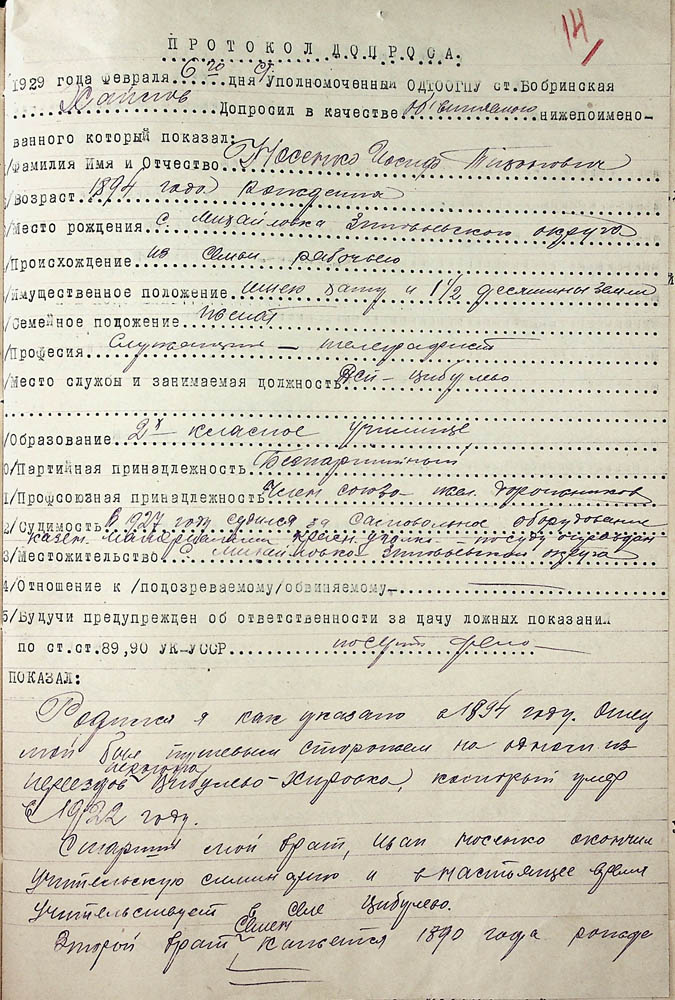 14
ПРОТОКОЛ ДОПРОСА.
1929 года Февраля 6го дня Уполномоченный ОДТООГПУ ст.Бобринская
Допросил в качестве нижепоимено-
ванного который показал:
/Фамилия Имя и Отчество Носенко Иосиф Тихонович
/Возраст 1894 года рождения
/Место рождения с. Михайловка Зиновьевского округа
/Происхождение из семьи рабочего
/Имущественное положение имею хату и 1 1/2 десятины земли
/Семейное положение женат
/Професия Служащий – телеграфист
/Место службы и занимаемая должность – Цибулево
/Образование 2х класное училище
0/Партийная принадлежность Беспартийный
1/Профсоюзная принадлежность Член союза жел. дорожников
2/Судимость В 1927 году судился за самовольное оборудование
казен. материалами красн. уголка – по суду оправдан
3/Местожительство С. Михайловка Зиновьевского округа
4/Отношение к /подозреваемому/обвиняемому –
5/Будучи предупрежден об ответственности за дачу ложных показаний
по ст.ст.89,90 УК УССР по сути дела –
ПОКАЗАЛ:
Родился я как указано в 1894 году. Отец
мой был путевым сторожем на одном из
переездов перегона Цибулево-Хировка, который умер
в 1922 году.
Старший мой брат, Иван Носенко окончил
учительскую семинарию и в настоящее время
учительствует в селе Цибулево.
Второй брат Семен кажется 1890 года рожде